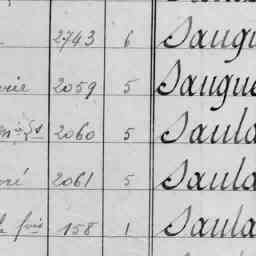 2743 6 Saugu
rie 2059 5 Saugue
2060 5 Saula
ré 2061 5 Saula
fois 158 1 Saula